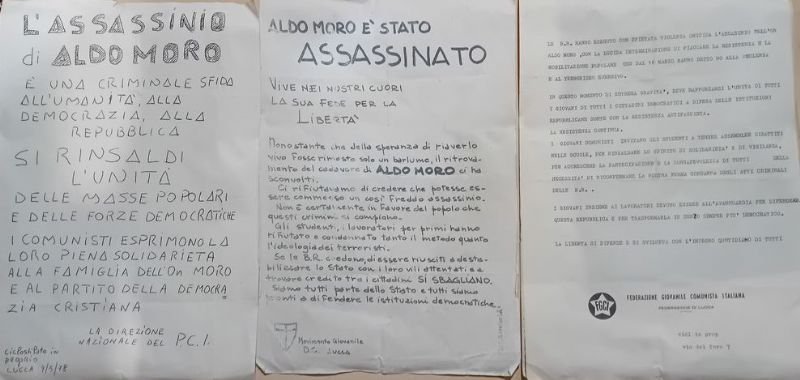 L'ASSASSINIO
di ALDO MORO
È UNA CRIMINALE SFIDA
ALL'UMANITÀ, ALLA
DEMOCRAZIA, ALLA
REPUBBLICA
SI RINSALDI
L'UNITÀ
DELLE MASSE POPOLARI
E DELLE FORZE DEMOCRATICHE
I COMUNISTI ESPRIMONO LA
LORO PIENA SOLIDARIETÀ
ALLA FAMIGLIA DELL'On MORO
E AL PARTITO DELLA DEMOCRA
ZIA CRISTIANA
LA DIREZIONE
NAZIONALE DEL P.C.I.
CicPostilato in
proprio
LUCCA 9/5/78
ALDO MORO È STATO
ASSASSINATO
VIVE NEI NOSTRI CUORI
LA SUA FEDE PER LA
LIBERTA'
Nonostante che della speranza di riaverlo
vivo fosse rimasto solo un barlume, il ritrova-
mento del cadavere di ALDO MORO ci ha
sconvolti.
Ci rifiutavamo di credere che potesse es-
sere commesso un così freddo assassinio.
Non è certamente in favore del popolo che
questi crimini si compiono.
Gli studenti, i lavoratori per primi hanno
rifiutato e condannato tanto il metodo quanto
l'ideologia dei terroristi.
Se le B.R. credono, di essere riusciti a desta-
bilizzare lo Stato con i loro vili attentati e a
trovare credito tra i cittadini SI SBAGLIANO.
Siamo tutti parte dello Stato e tutti siamo
pronti a difendere le istituzioni democratiche.
Movimento Giovanile
D.C. LUCCA
LE B.R. HANNO ESEGUITO CON SPIETATA VIOLENZA OMICIDA L'ASSASSINIO DELL'ON
ALDO MORO ,CON LA LUCIDA DETERMINAZIONE DI FIACCARE LA RESISTENZA E LA
MOBILITAZIONE POPOLARE CHE DAL 16 MARZO HANNO DETTO NO ALLA VIOLENZA
E AL TERRORISMO EVERSIVO.
IN QUESTO MOMENTO DI ESTREMA GRAVITA', DEVE RAFFORZARSI L'UNITA DI TUTTI
I GIOVANI DI TUTTI I CITTADINI DEMOCRATICI A DIFESA DELLE ISTITUZIONI
REPUBBLICANE SORTE CON LA RESISTENZA ANTIFASCISTA.
LA RESISTENZA CONTINUA.
I GIOVANI COMUNISTI INVITANO GLI STUDENTI A TENERE ASSEMBLEE DIBATTITI
NELLE SCUOLE, PER RINSALDARE LO SPIRITO DI SOLIDARIETA' E DI VIGILANZA,
PER ACCRESCERE LA PARTECIPAZIONE E LA CONSAPEVOLEZZA DI TUTTI DELLA
NECESSITA' DI RICONFERMARE LA NOSTRA FERMA CONDANNA DEGLI ATTI CRIMINALI
DELLE B.R..
I GIOVANI INSIEME AI LAVORATORI DEVONO ESSERE ALL'AVANGUARDIA PER DIFENDERE
QUESTA REPUBBLICA E PER TRASFORMARLA IN SENSO SEMPRE PIU' DEMOCRATICO.
LA LIBERTA SI DIFENDE E SI SVILUPPA CON L'IMPEGNO QUOTIDIANO DI TUTTI
FGCI
FEDERAZIONE GIOVANILE COMUNISTA ITALIANA
FEDERAZIONE DI LUCCA
cicl in prop
via del Toro 7